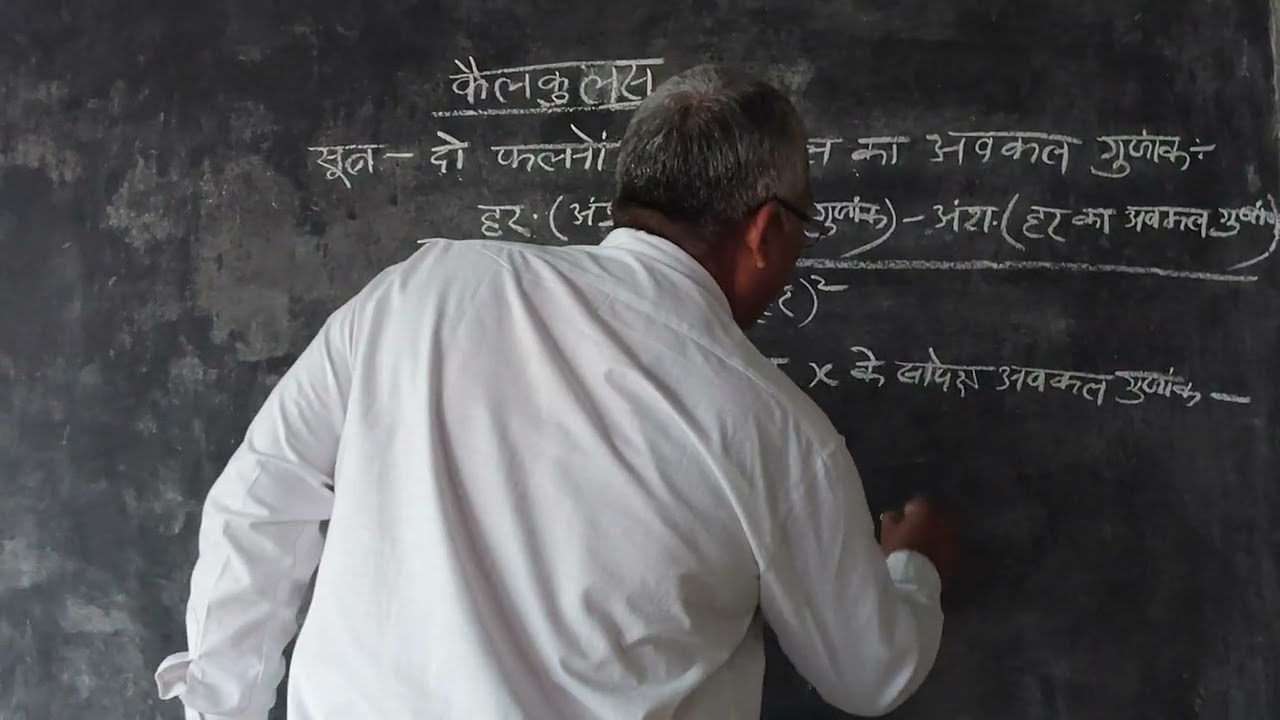 कैलकुलस
सूत्र - दो फलनों का अवकल गुणांक ÷
हर·( गुणांक) - अंश·(हर का अवकल गुणांक)
)²
x के सापेक्ष अवकल गुणांक -